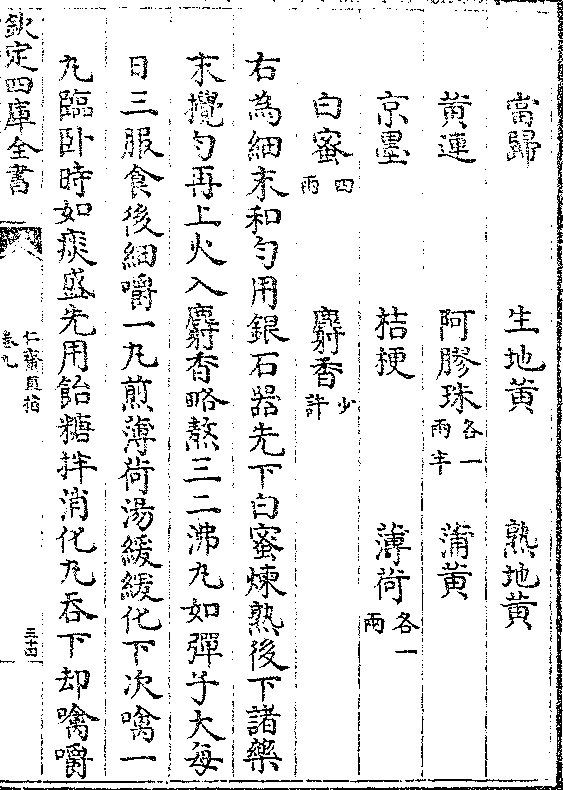 當歸 生地黄 熟地黄
黄連 阿膠珠各一兩半 蒲黄
京墨 桔梗 薄荷各一兩
白蜜四兩 麝香少許
右為細末和勻用銀石器先下白蜜煉熟後下諸藥
末攪勻再上火入麝香略熬三二沸丸如彈子大每
日三服食後細嚼一丸煎薄荷湯緩緩化下次噙一
丸臨卧時如痰盛先用飴糖拌消化丸吞下却噙嚼
欽定四庫全書
仁齋直指
卷九
三十四